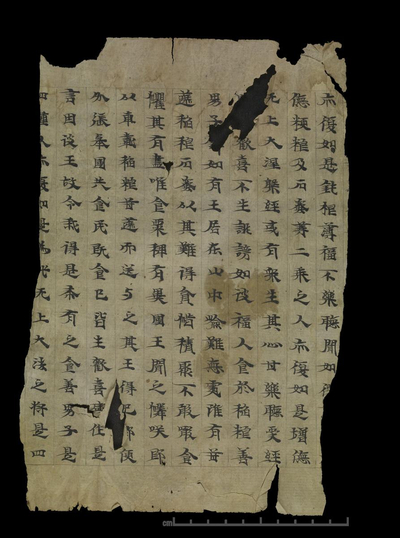 亦復如是鈍根薄福不樂聽聞如彼
粳粮及石蜜等二乘之人亦復如是憎
无上大涅槃經或有衆生其心甘樂聽受經
歡喜不生誹謗如彼福人食於稻粮善
男子如有王居在山中險難惡處雖有甘
蔗稻粮石蜜以其難得貪惜積聚不敢噉食
懼其有盡唯食粟稗有異國王聞之憐咲即
以車載稻粮甘蔗而送与之其王得已即便
分張舉國共食民既食已皆生歡喜作是
言因彼王故令我得是希有之食善男子是
四種人亦復如是為此无上大法之將是四
cm